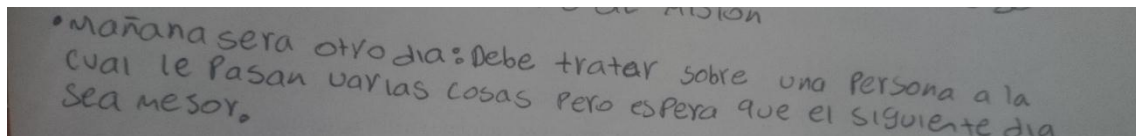 misión
•Mañana sera otro dia: Debe tratar sobre una Persona a la
cual le Pasan varias cosas Pero espera que el siguiente dia
sea mesor.